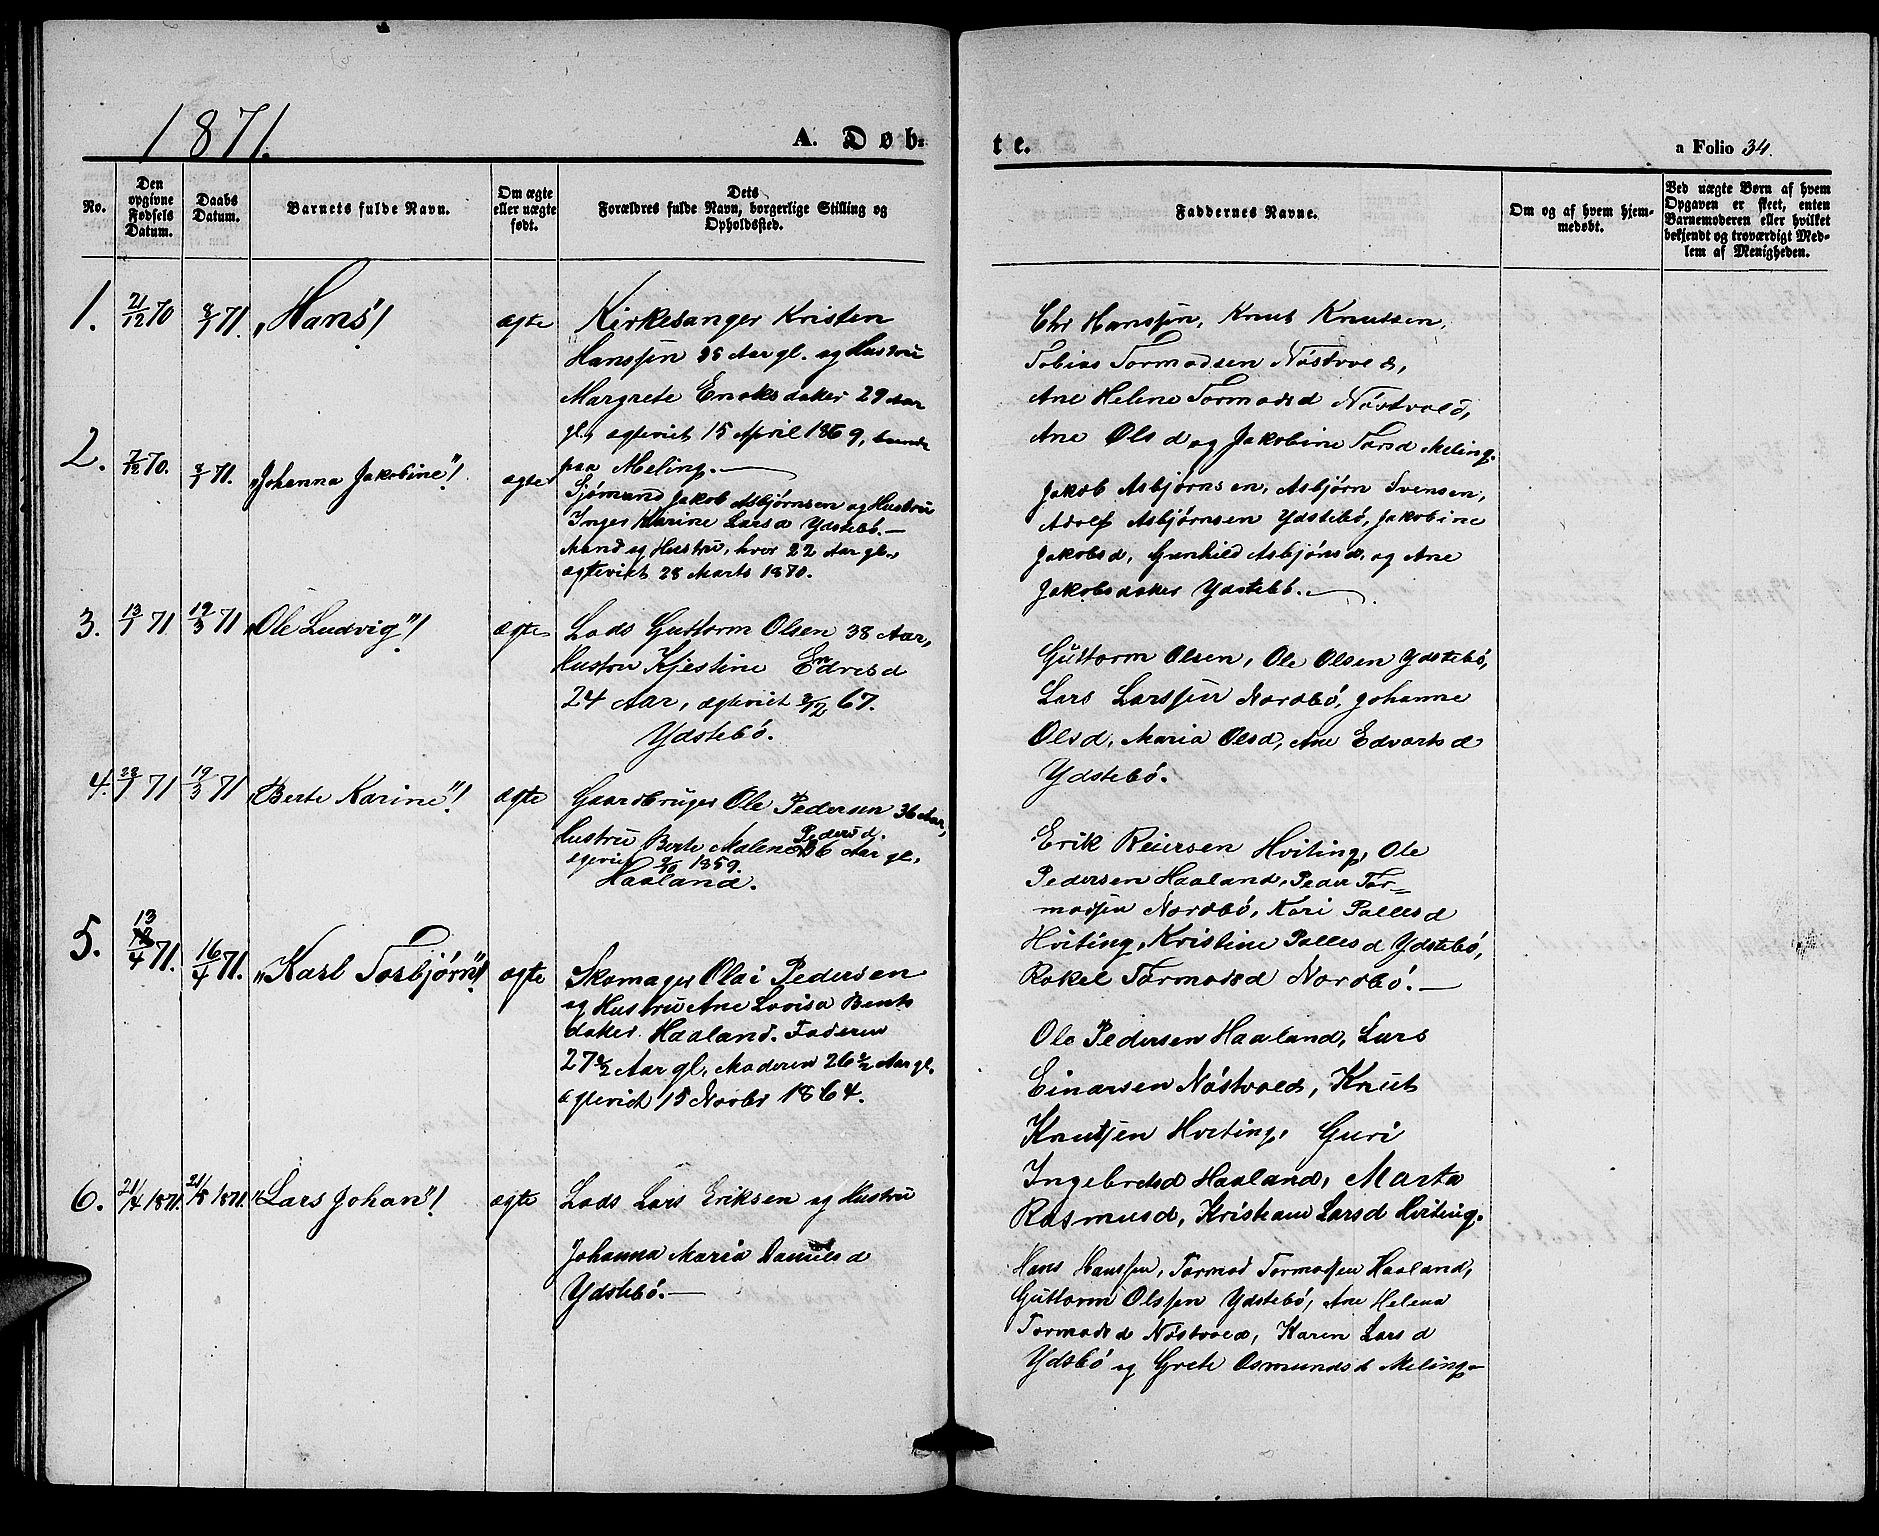 1871.
A. Døb-
te.
a Folio 34.
No.
Den opgivne Fødsels Datum.
Daabs Datum.
Barnets fulde Navn.
Om ægte eller uægte født.
Dets Forældres fulde Navn, borgerlige Stilling og Opholdssted.
Faddernes Navne.
Om og af hvem hjemmedøbt.
Ved uægte Børn af hvem Opgaven er skeet, enten Barnemoderen eller hvilket bekjendt og troværdigt Medlem af Menigheden.
1. 21/12 70 8/1 71. „Hans"! ægte
Kirkesanger Kristen
Hanssen 38 Aar gl. og Hustru
Margrete Enoksdater 29 Aar
gl., egteviet 15 April 1869, bende
paa Meling.
Chr Hanssen, Knut Knutsen,
Tobias Tormodsen Nöstvold,
Ane Helene Tormodsd Nöstvold,
Ane Olsd og Jakobine Torsd Meling.
2. 7/12 70. 8/1 71. „Johanna Jakobine"! ægte
Sjømand Jakob Asbjørnsen og Hustru
Inger Karine Larsd Ydstebö.
Mand og Hustru, hver 22 Aar gl.,
egteviet 28 Marts 1870.
Jakob Asbjørnsen, Asbjørn Svensen,
Adolf Asbjørnsen Ydstebö, Jakobine
Jakobsd, Gunhild Asbjönsd. og Ane
Jakobsdater Ydstebö.
3. 13/1 71 19/3 71 „Ole Ludvig"! ægte
Lods Guttorm Olsen 38 Aar,
Hustru Kjestine Endresd
24 Aar, egteviet 3/12 67.
Ydstebö.
Guttorm Olsen, Ole Olsen Ydstebö,
Lars Larssen Nordbö, Johanne
Olsd, Maria Olsd, Ane Edvartsd
Ydstebö.
4. 28/1 71 19/3 71 „Berte Karine"! ægte
Gaardbruger Ole Pedersen 36 Aar,
Hustru Berte Malene Pedersd. 36 Aar gl.
egeviet 1859.
Haaland.
Erik Reiersen Hviting, Ole
Pedersen Haaland, Peder Tor=
modsen Nordbö, Kari Pallesd
Hviting, Kristine Pallesd Ydstebö,
Rakel Tormodsd Nordbö.
5. 13/4 71. 16/4 71. „Karl Torbjörn"! ægte
Skomager Olai Pedersen
og Hustru Ane Lovisa Bents
dater Haaland. Faderen
27 1/2 Aar gl., Moderen 26 1/2 Aar gl.
egteviet 15 Novbr 1864.
Ole Pedersen Haaland, Lars
Einarsen Nöstvold, Knut
Knutsen Hviting, Guri
Ingebretsd Haaland, Marta
Rasmusd, Kristiane Larsd Hviting.
6. 21/4 1871. 21/5 1871. „Lars Johan"! ægte
Lods Lars Eriksen og Hustru
Johanna Maria Danielsd
Ydstebö.
Hans Hanssen, Tormod Tormodsen Haaland,
Guttorm Olssen Ydstebö, Ane Helena
Tormodsd Nöstvold, Karen Larsd
Ydsbö og Grete Osmundsd Meling